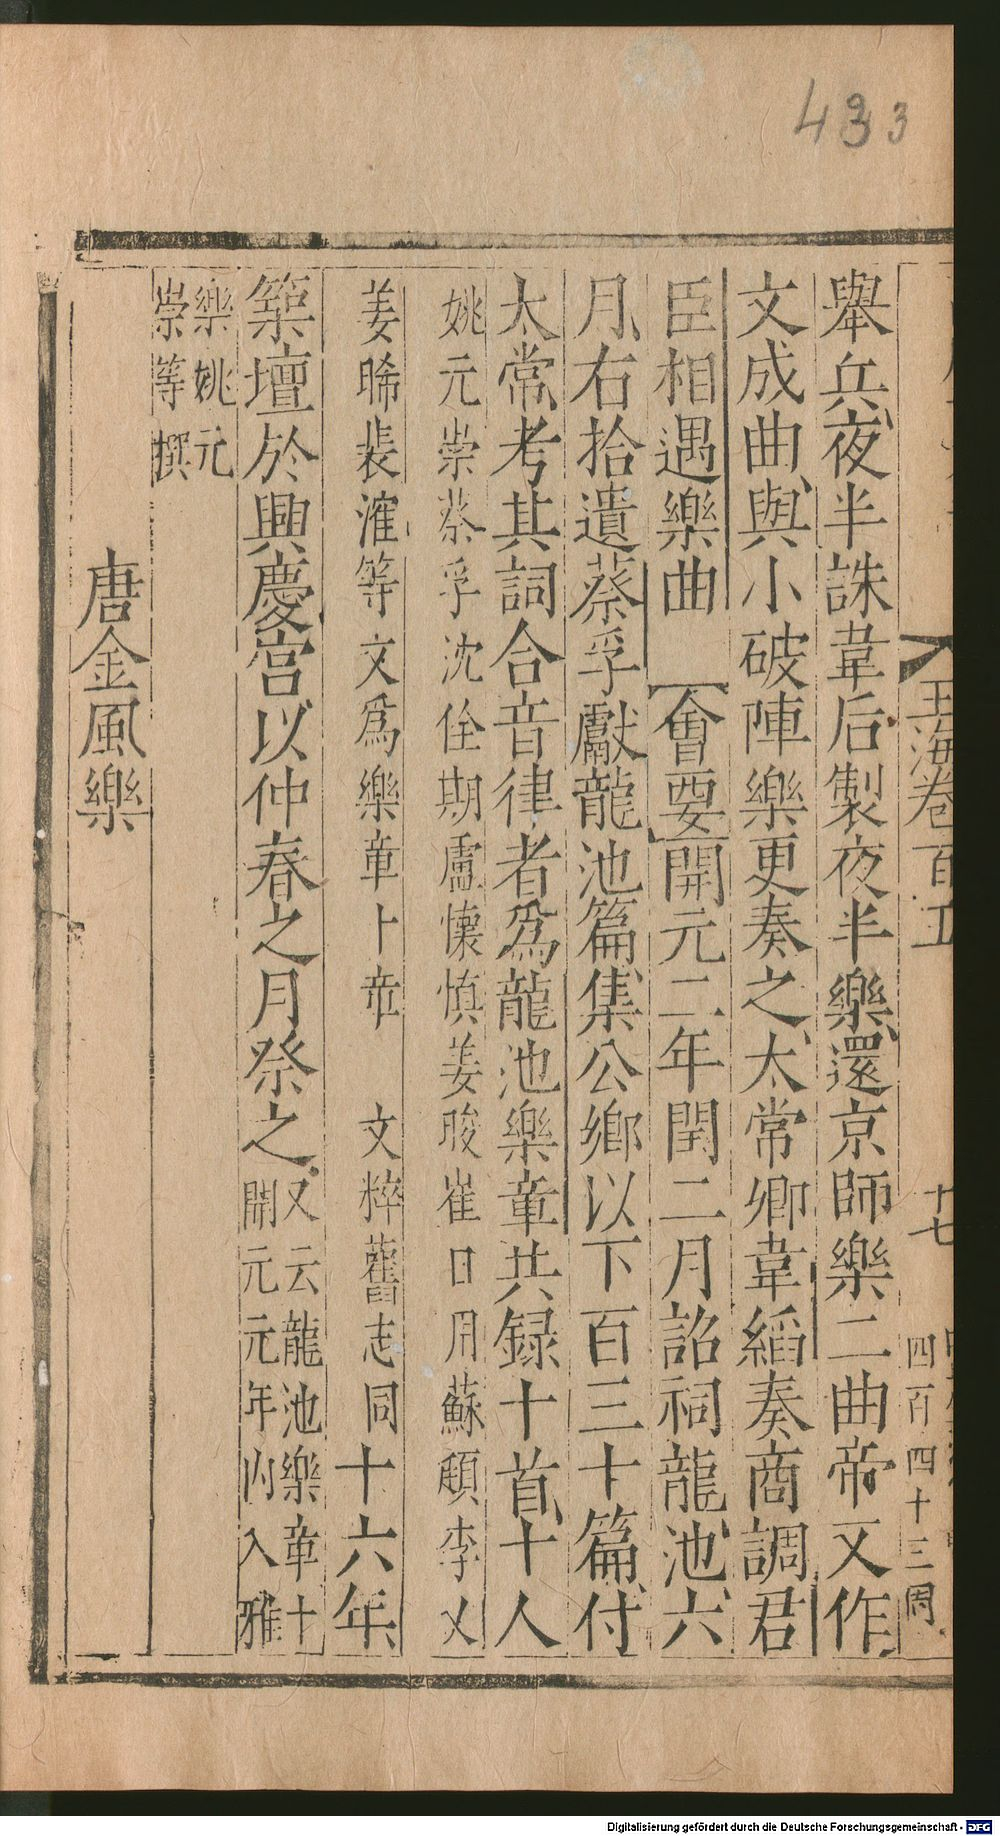 433
玉海卷百五
十七
四百四十三周
舉兵夜半誅韋后製夜半樂還京師樂二曲帝又作
文成曲與小破陣樂更奏之太常卿韋縚奏商調君
臣相遇樂曲 會要開元二年閏二月詔祠龍池六
月右拾遺蔡孚獻龍池篇集公卿以下百三十篇付
太常考其詞合音律者爲龍池樂章共録十首十人
姚元崇蔡孚沈佺期盧懷慎姜晞崔日用蘇頲李乂
姜晞裴漼等文爲樂章十章 文粹舊志同十六年
築壇於興慶宮以仲春之月祭之又云龍池樂章十
開元元年內入雅
樂姚元
崇等撰
唐金風樂
Digitalisierung gefördert durch die Deutsche Forschungsgemeinschaft - DFG